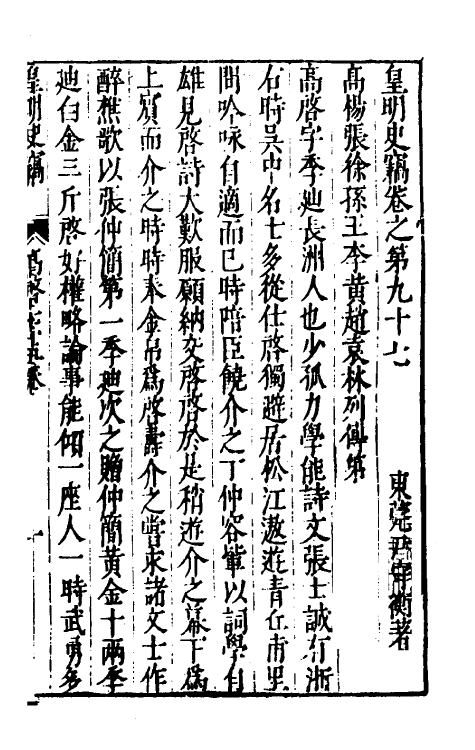 皇明史竊卷之第九十七
東莞尹守衡著
高楊張徐孫王李黃趙袁林列傳第
高啓字季迪長洲人也少孤力學能詩文張士誠有浙
右時吳中名士多從仕啓獨避居松江遨遊青丘甫里
間吟咏自適而已時陪臣饒介之丁仲容輩以詞學自
雄見啓詩大歎服願納交啓啓於是稍遊介之幕下為
上賓而介之時時奉金帛爲啓壽介之嘗求諸文士作
醉樵歌以張仲簡第一季迪次之贈仲簡黃金十兩季
迪白金三斤啓好權略論事能傾一座人一時武勇多
皇明史竊
高啓
一